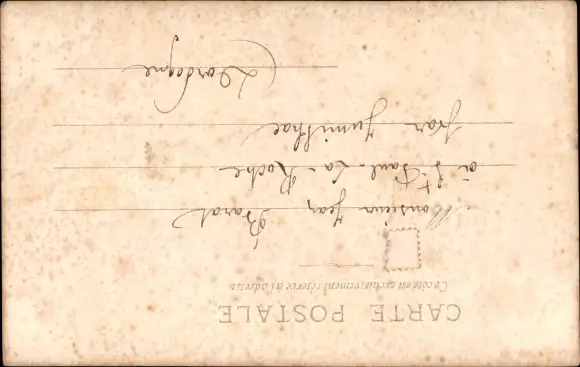 CARTE POSTALE
Ce côté est exclusivement réservé à l'adresse
Monsieur Jean Barat
à St Paul-La-Roche
par Jumilhac
Dordogne